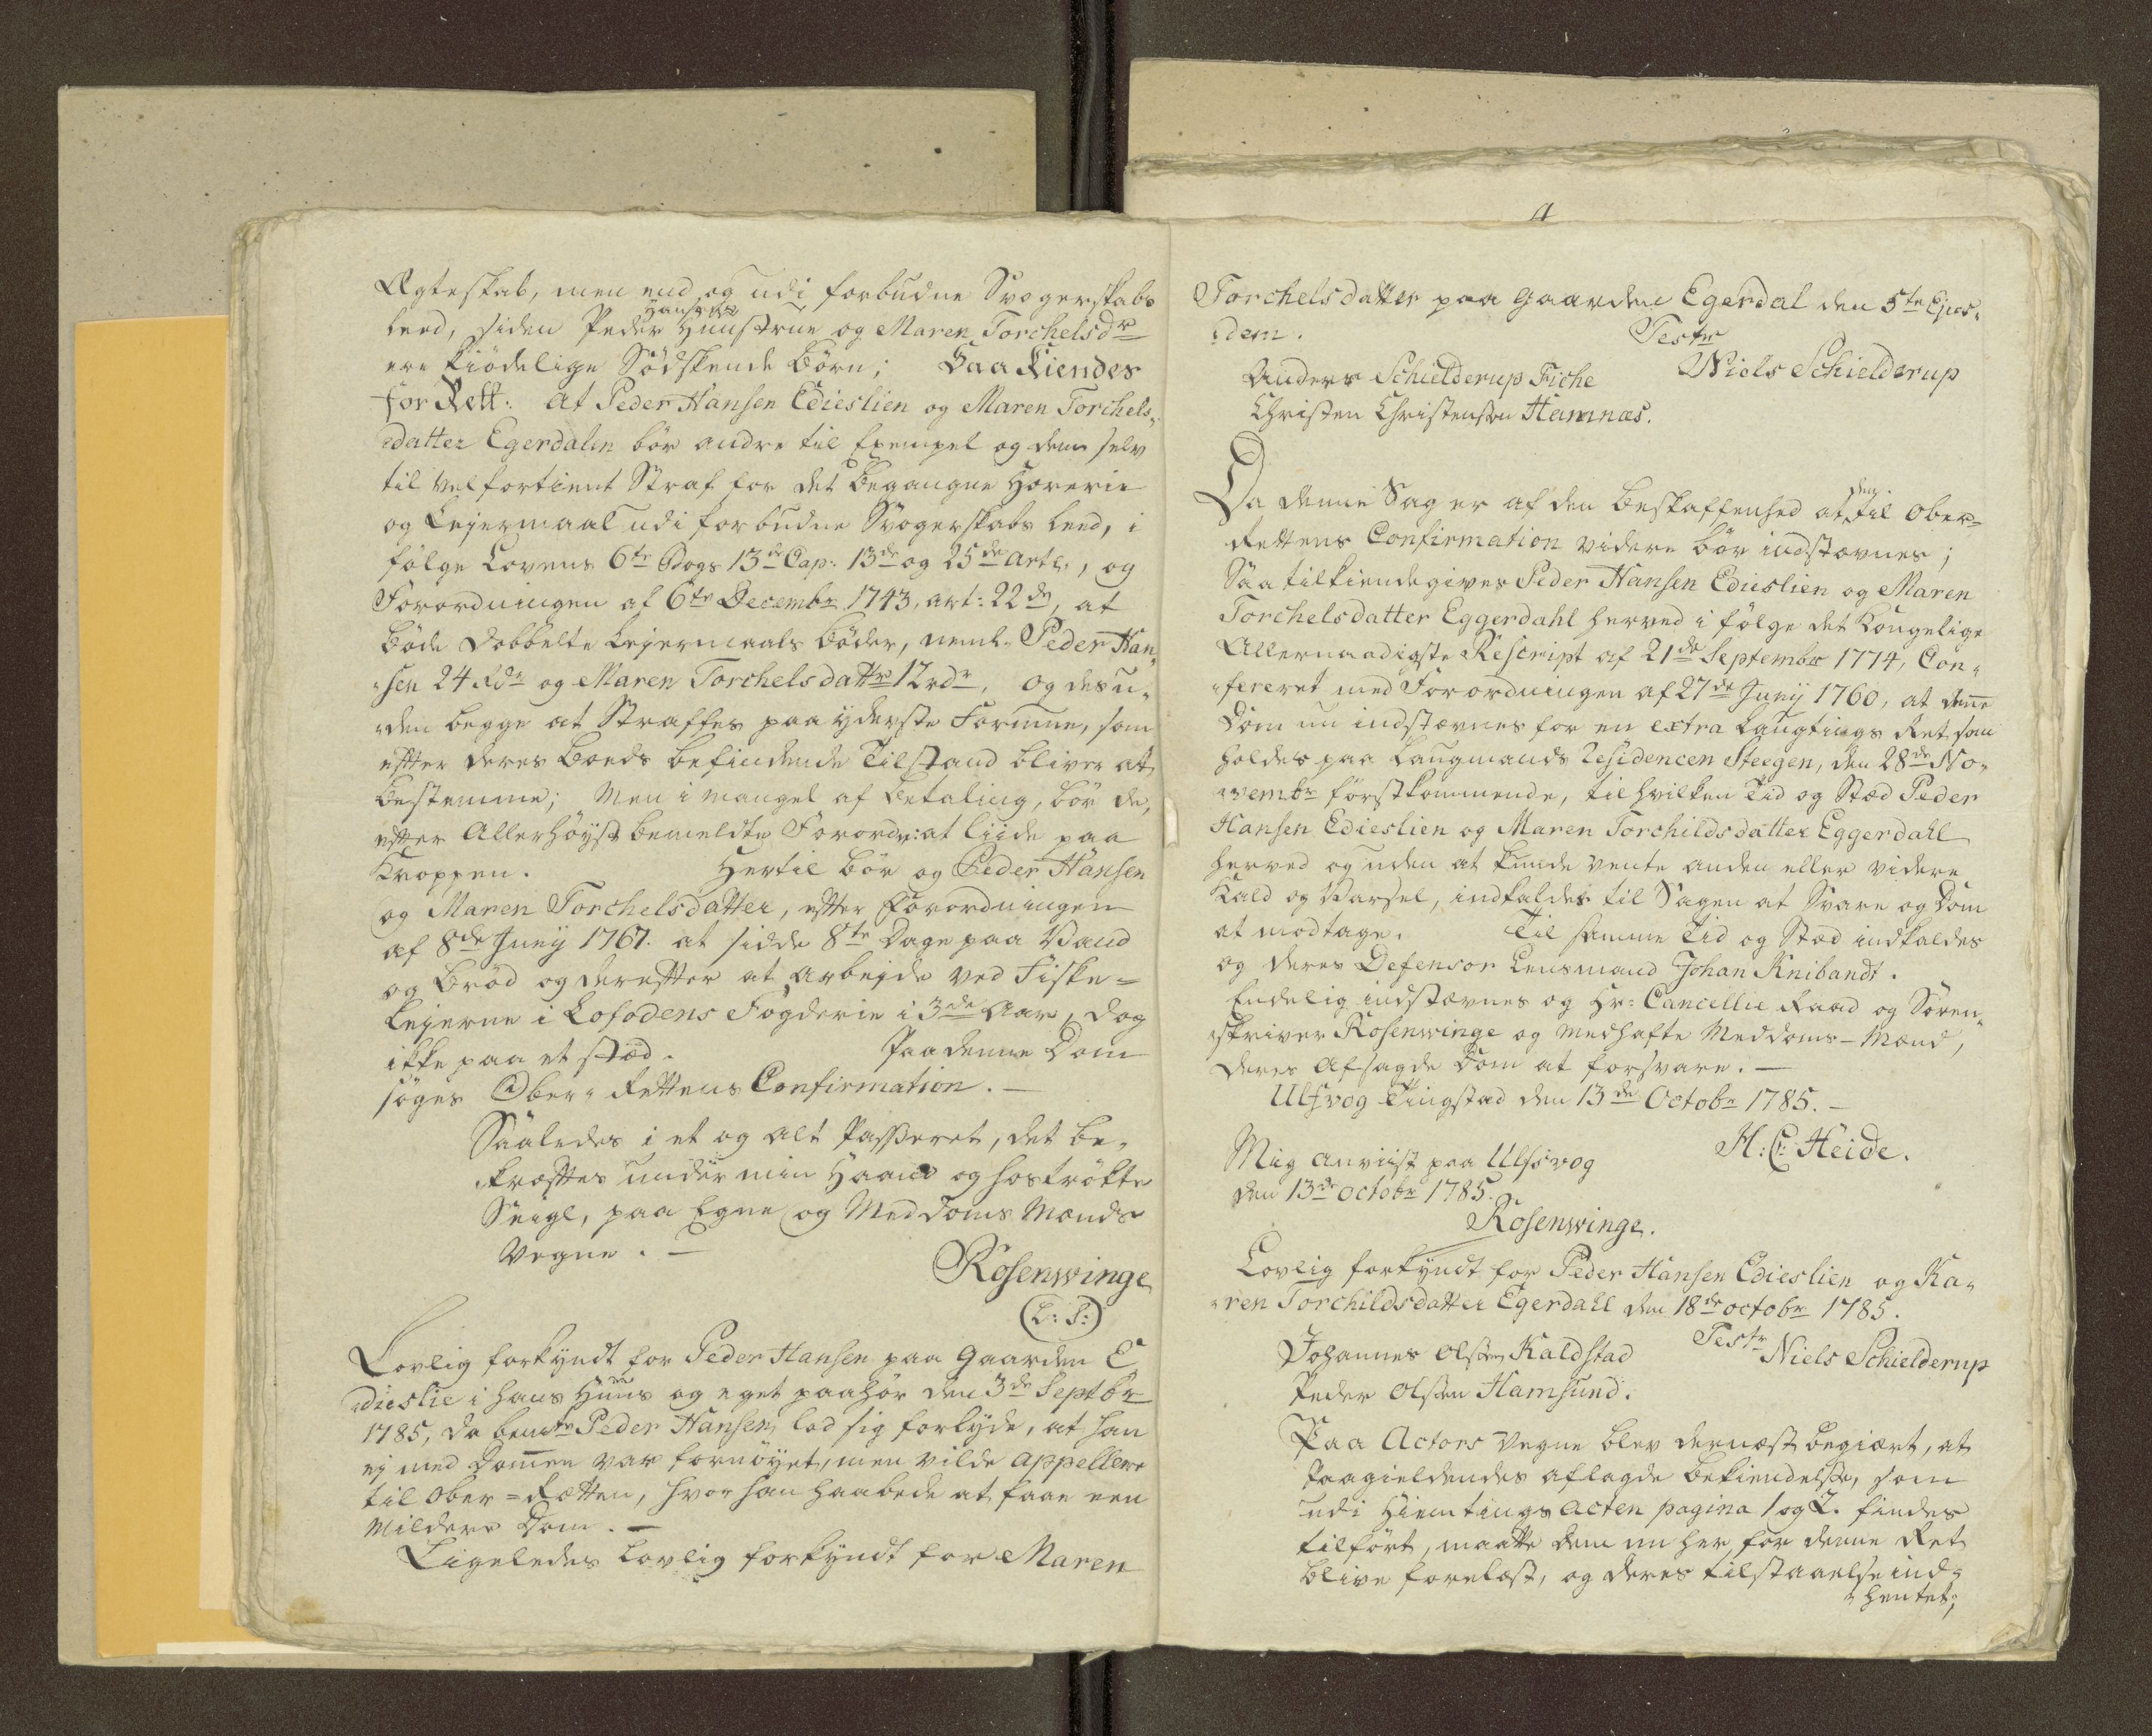 Ægteskab, men end og udi forbudne Svogerskabs
Leed, siden Peder Hansens Hustrue og Maren Torchelsdr
ere kiödelige Södskende Börn; Saa Kiendes
for Rett: At Peder Hansen Edieslien og Maren Torchels-
datter Egerdalen bör andre til Exempel og dem selv
til velfortient Straf for det begangne Horerie
og Lejermaal udi forbudne Svogerskabs Leed, i
fölge Lovens 6te Bogs 13de Cap: 13de og 25de Artl:, og
Forordningen af 6te Decembr 1743, art: 22de, at
böde dobbelte Lejermaals Böder, neml: Peder Han-
sen 24 Rdr og Maren Torchelsdattr 12 rdr, og desu-
den begge at Straffes paa yderste Formue, som
efter deres Boeds befindende Tilstand bliver at
bestemme; Men i mangel af Betaling, bör de,
efter Allerhöyst bemeldte Forordn: at liide paa
Kroppen. Hertil bör og Peder Hansen
og Maren Torchelsdatter, efter Forordningen
af 8de Juny 1767. at sidde 8te Dage paa Vand
og Bröd og derefter at arbejde ved Fiske-
Lejerne i Lofodens Fogderie i 3de Aar, dog
ikke paa et stæd. Paa denne Dom
söges Ober-Rettens Confirmation.
Saaledes i et og alt Passeret, det be-
kræftes under min Haand og hoströkte
Seigl, paa Egne og Meddoms Mænds
Vegne.
Rosenwinge
(L: S:)
Lovlig forkyndt for Peder Hansen paa Gaarden E
dieslie i hans Huus og eget paahör den 3de Septbr
1785, da bemte Peder Hansen lod sig forlyde, at han
ej med Dommen var fornöyet, men vilde appellere
til Ober-Retten, hvor han haabede at faae een
Mildere Dom.
Ligeledes lovlig forkyndt for Maren
Torchelsdatter paa Gaarden Egerdal den 5te Ejus-
dem.
Testr
Anders Schielderup Fiche Niels Schielderup
Christen Christensen Hamnæs.
Da denne Sag er af den Beskaffenhed at den til Ober-
Rettens Confirmation videre bör indstævnes;
Saa tilkiendegives Peder Hansen Edieslien og Maren
Torchelsdatter Eggerdahl herved i fölge det Kongelige
Allernaadigste Rescript af 21de Septembr 1774, Con-
fereret med Forordningen af 27de Juny 1760, at denne
Dom nu indstævnes for en extra Laugtings Ret som
holdes paa Laugmands Residencen Steegen, den 28de No-
vembr förstkommende, til hvilken Tid og Stæd Peder
Hansen Edieslien og Maren Torchildsdatter Eggerdahl
herved og uden at kunde vente anden eller videre
Kald og Varsel, indkaldes til Sagen at Svare og Dom
at modtage. Til samme Tid og Stæd indkaldes
og deres Defensor Lensmand Johan Knibandt.
Endelig indstævnes og Hr: Cancellie Raad og Soren-
skriver Rosenwinge og medhafte Meddoms-Mænd,
deres afsagde Dom at forsvare.
Ulfsvog Tingstad den 13de Octobr 1785.
H: C: Heide.
Mig anviist paa Ulfsvog
den 13de octobr 1785.
Rosenwinge.
Lovlig forkyndt for Peder Hansen Edieslien og Ma-
ren Torchildsdatter Egerdahl den 18de octobr 1785.
Testr
Johannes Olsen Kaldstad Niels Schielderup
Peder Olsen Hamsund.
Paa Actors Vegne blev dernæst begiært, at
Paagieldendes aflagde Bekiendelse, som
udi Hiemtings Acten pagina 1 og 2. findes
tilfört, maatte dem nu her for denne Ret
blive forelæst, og deres tilstaaelse ind-
hentet;